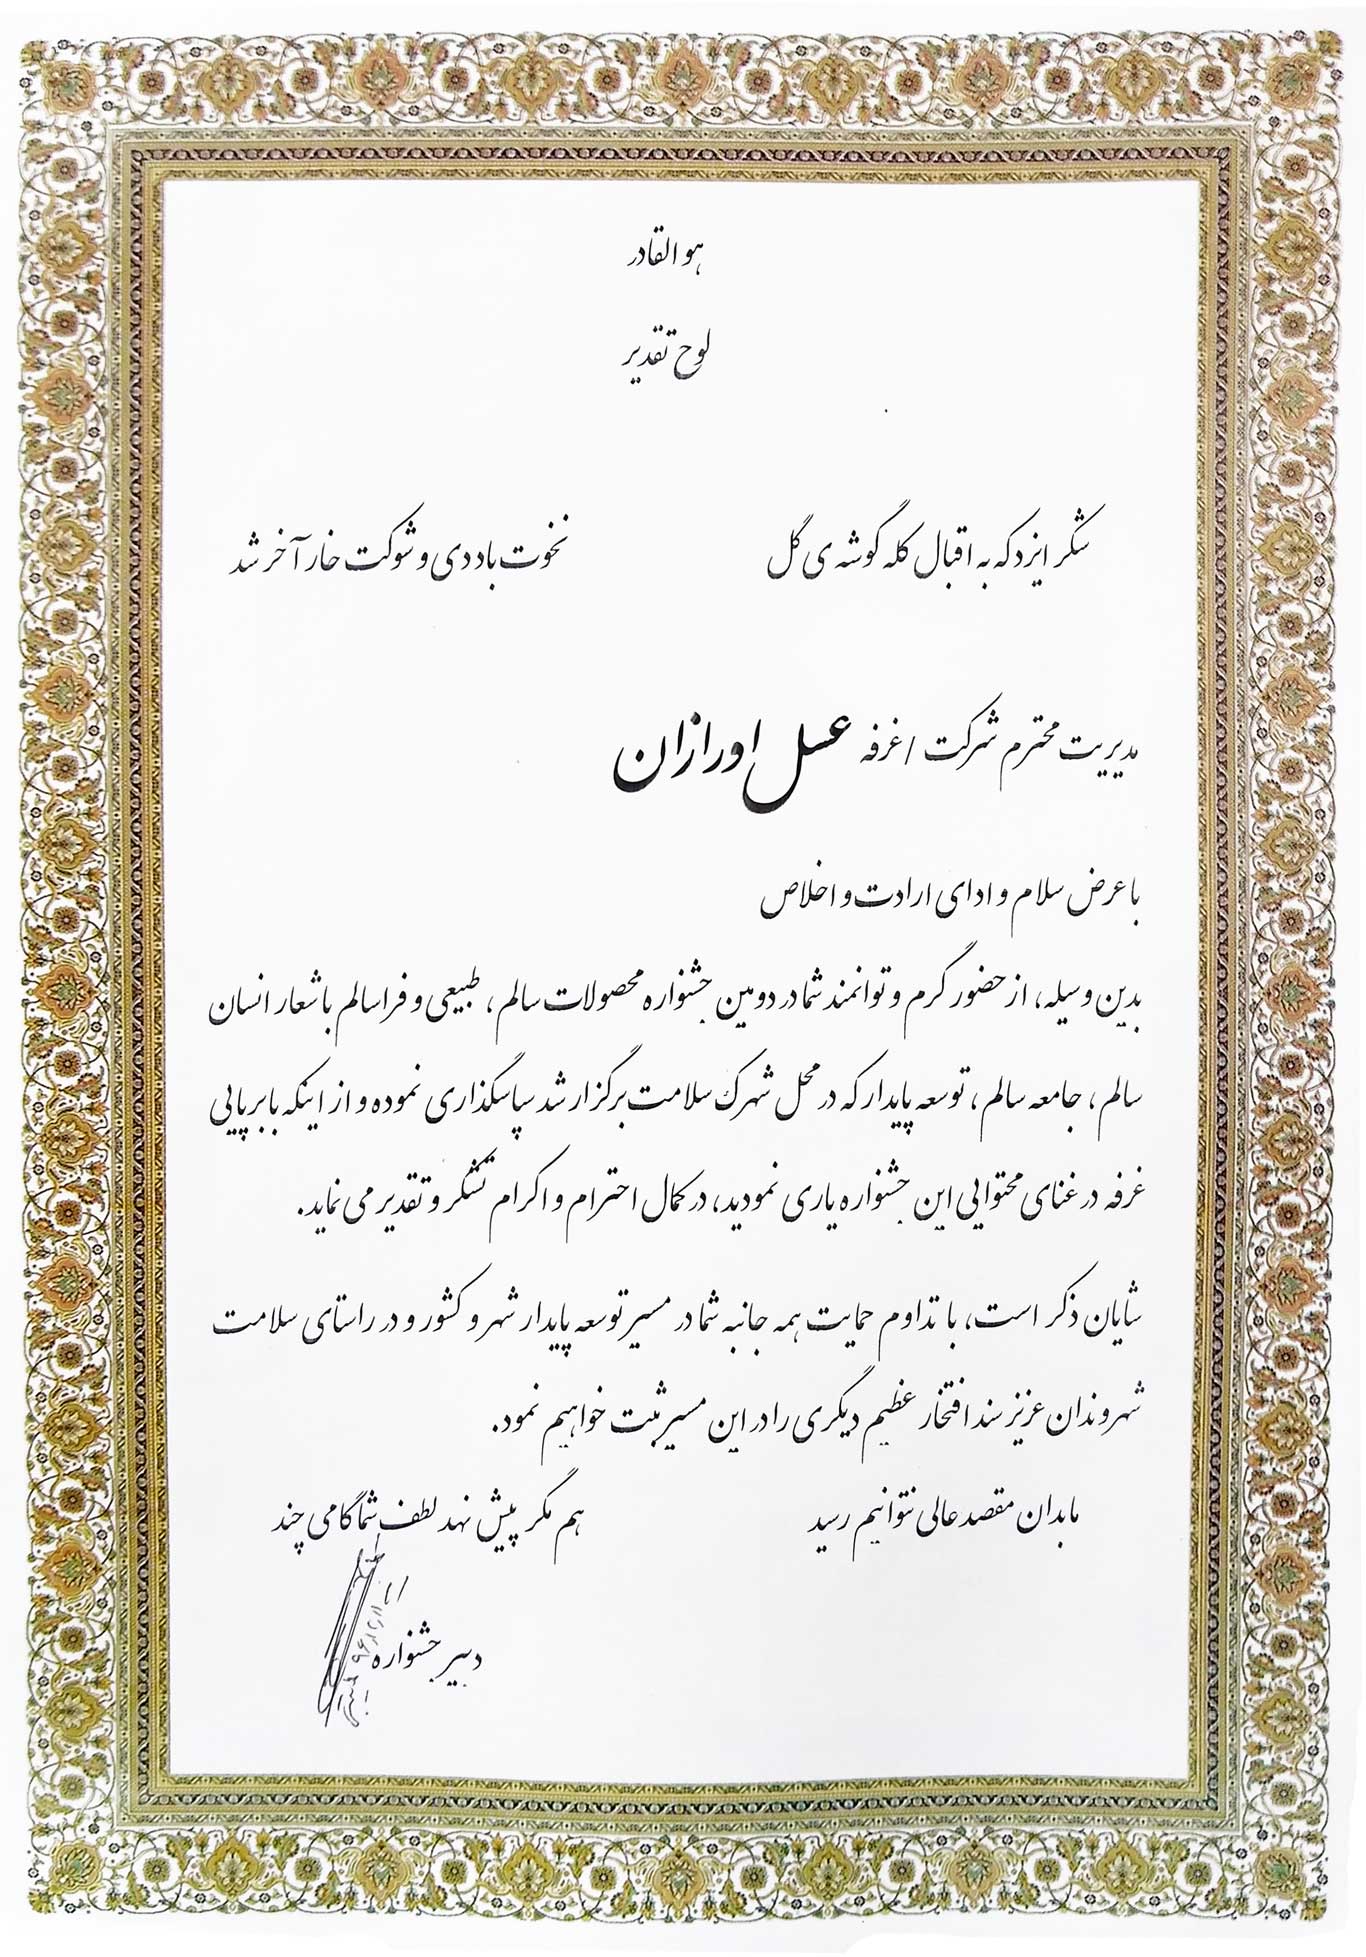 هو القادر
لوح تقدیر
شکر ایزد که به اقبال کله گوشه ی گل نخوت باد دی و شوکت خار آخر شد
مدیریت محترم شرکت / غرفه عسل اورازان
با عرض سلام و ادای ارادت و اخلاص
بدین وسیله، از حضور گرم و توانمند شما در دومین جشنواره محصولات سالم، طبیعی و فراسالم با شعار انسان
سالم، جامعه سالم، توسعه پایدار که در محل شهرک سلامت برگزار شد سپاسگذاری نموده و از اینکه با برپایی
غرفه در غنای محتوایی این جشنواره یاری نمودید، در کمال احترام و اکرام تشکر و تقدیر می نماید.
شایان ذکر است، با تداوم حمایت همه جانبه شما در مسیر توسعه پایدار شهر و کشور و در راستای سلامت
شهروندان عزیز سند افتخار عظیم دیگری را در این مسیر ثبت خواهیم نمود.
ما بدان مقصد عالی نتوانیم رسید هم مگر پیش نهد لطف شما گامی چند
دبیر جشنواره